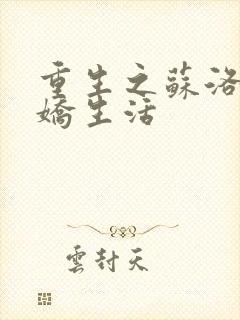 重生之蘇洛
嬌生活
雲封天